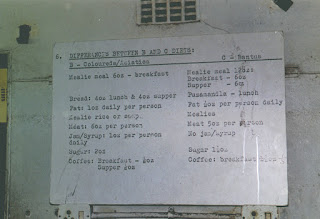 5. DIFFERENCE BETWEEN B AND C DIETS:
B - Coloureds/Asiatics C - Bantus
Mealie meal 6oz - breakfast Mealie meal 12oz:
Breakfast - 6oz
Supper - 6oz
Bread: 4oz lunch & 4oz supper Puzamandla - lunch
Fat: 1oz daily per person Fat ½oz per person daily
Mealie rice or samp Mealies
Meat: 6oz per person Meat 5oz per person
Jam/Syrup: 1oz per person No jam/syrup
daily
Sugar: 2oz Sugar 1½oz
Coffee: Breakfast - ¼oz Coffee: breakfast
Supper ¼oz